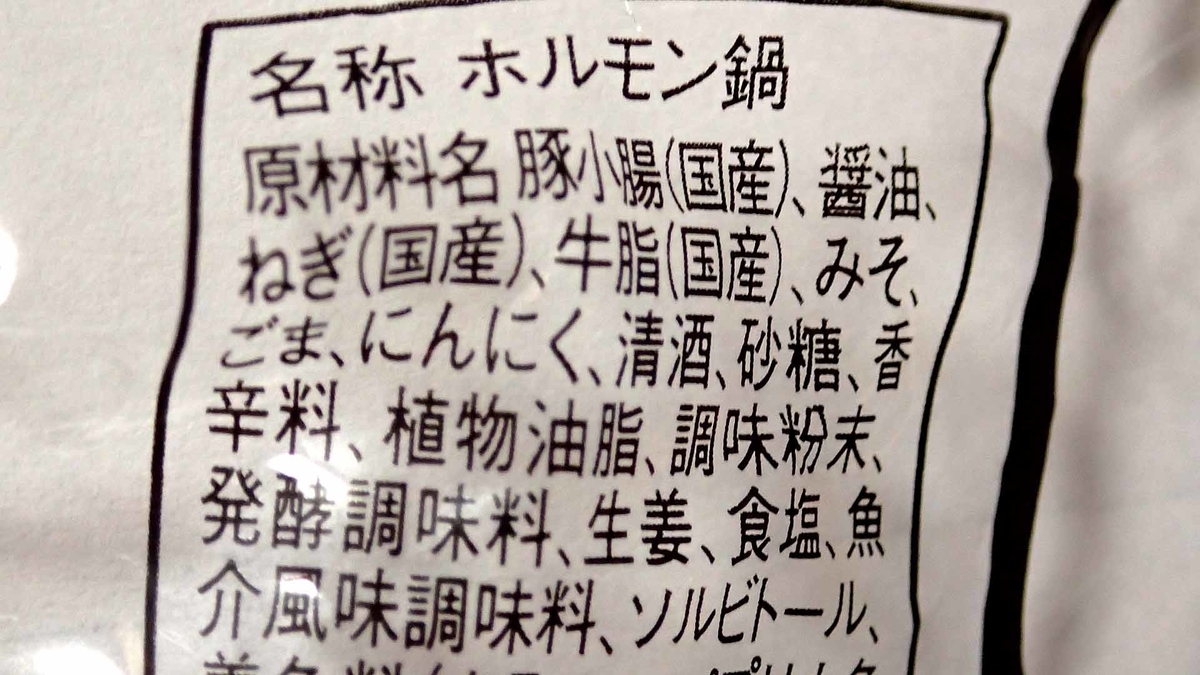 名称 ホルモン鍋
原材料名 豚小腸(国産)、醤油、
ねぎ(国産)、牛脂(国産)、みそ、
ごま、にんにく、清酒、砂糖、香
辛料、植物油脂、調味粉末、
発酵調味料、生姜、食塩、魚
介風味調味料、ソルビトール、